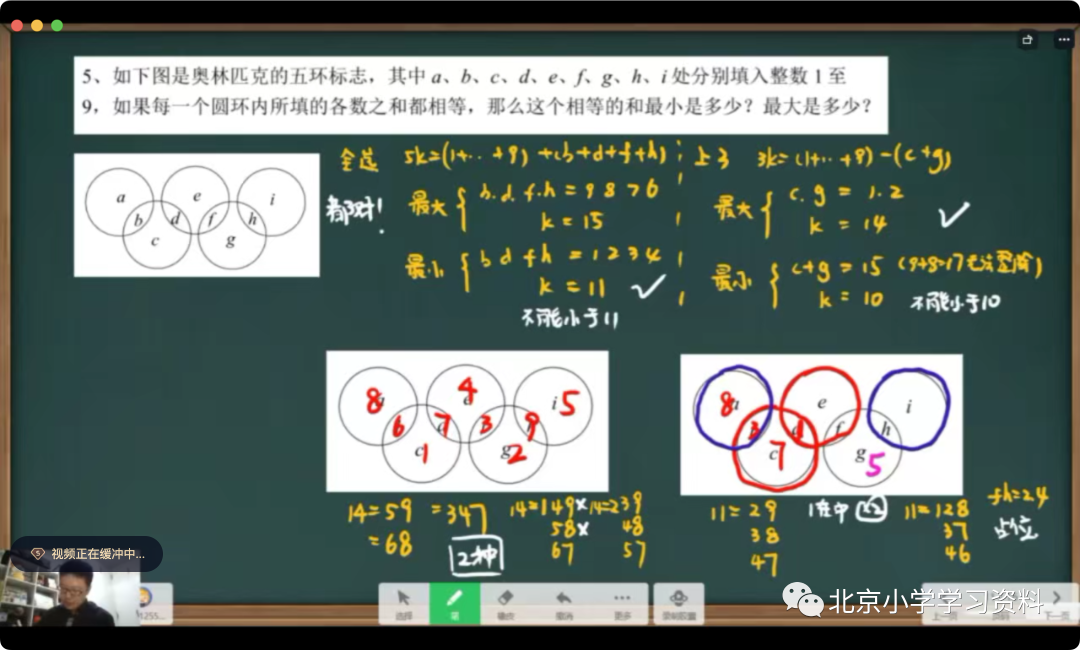 5、如下图是奥林匹克的五环标志，其中 a、b、c、d、e、f、g、h、i 处分别填入整数 1 至
9，如果每一个圆环内所填的各数之和都相等，那么这个相等的和最小是多少？最大是多少？
全选 5k=(1+··+9)+(b+d+f+h)
上3 3k=(1+··+9)-(c+g)
都对!
最大 { b.d.f.h = 9 8 7 6
k = 15
最大 { c.g = 1.2
k = 14 ✓
最小 { b d f h = 1 2 3 4
k = 11 ✓
不可能小于11
最小 { c+g = 15 (9+8=17无法整除)
k = 10 不可能小于10
a b c d e f g h i
8 6 1 7 4 3 2 9 i 5
8 3 7 1 e f g 5 h i
14=59 =347
=68
2种
14=149× 14=239
58× 48
67 57
11=29
38
47
1在中 ×2
11=128
37
46
fh=24
占位
视频正在缓冲中...
1255...
选择
笔
橡皮
撤消
更多
上一页
下一页
北京小学学习资料